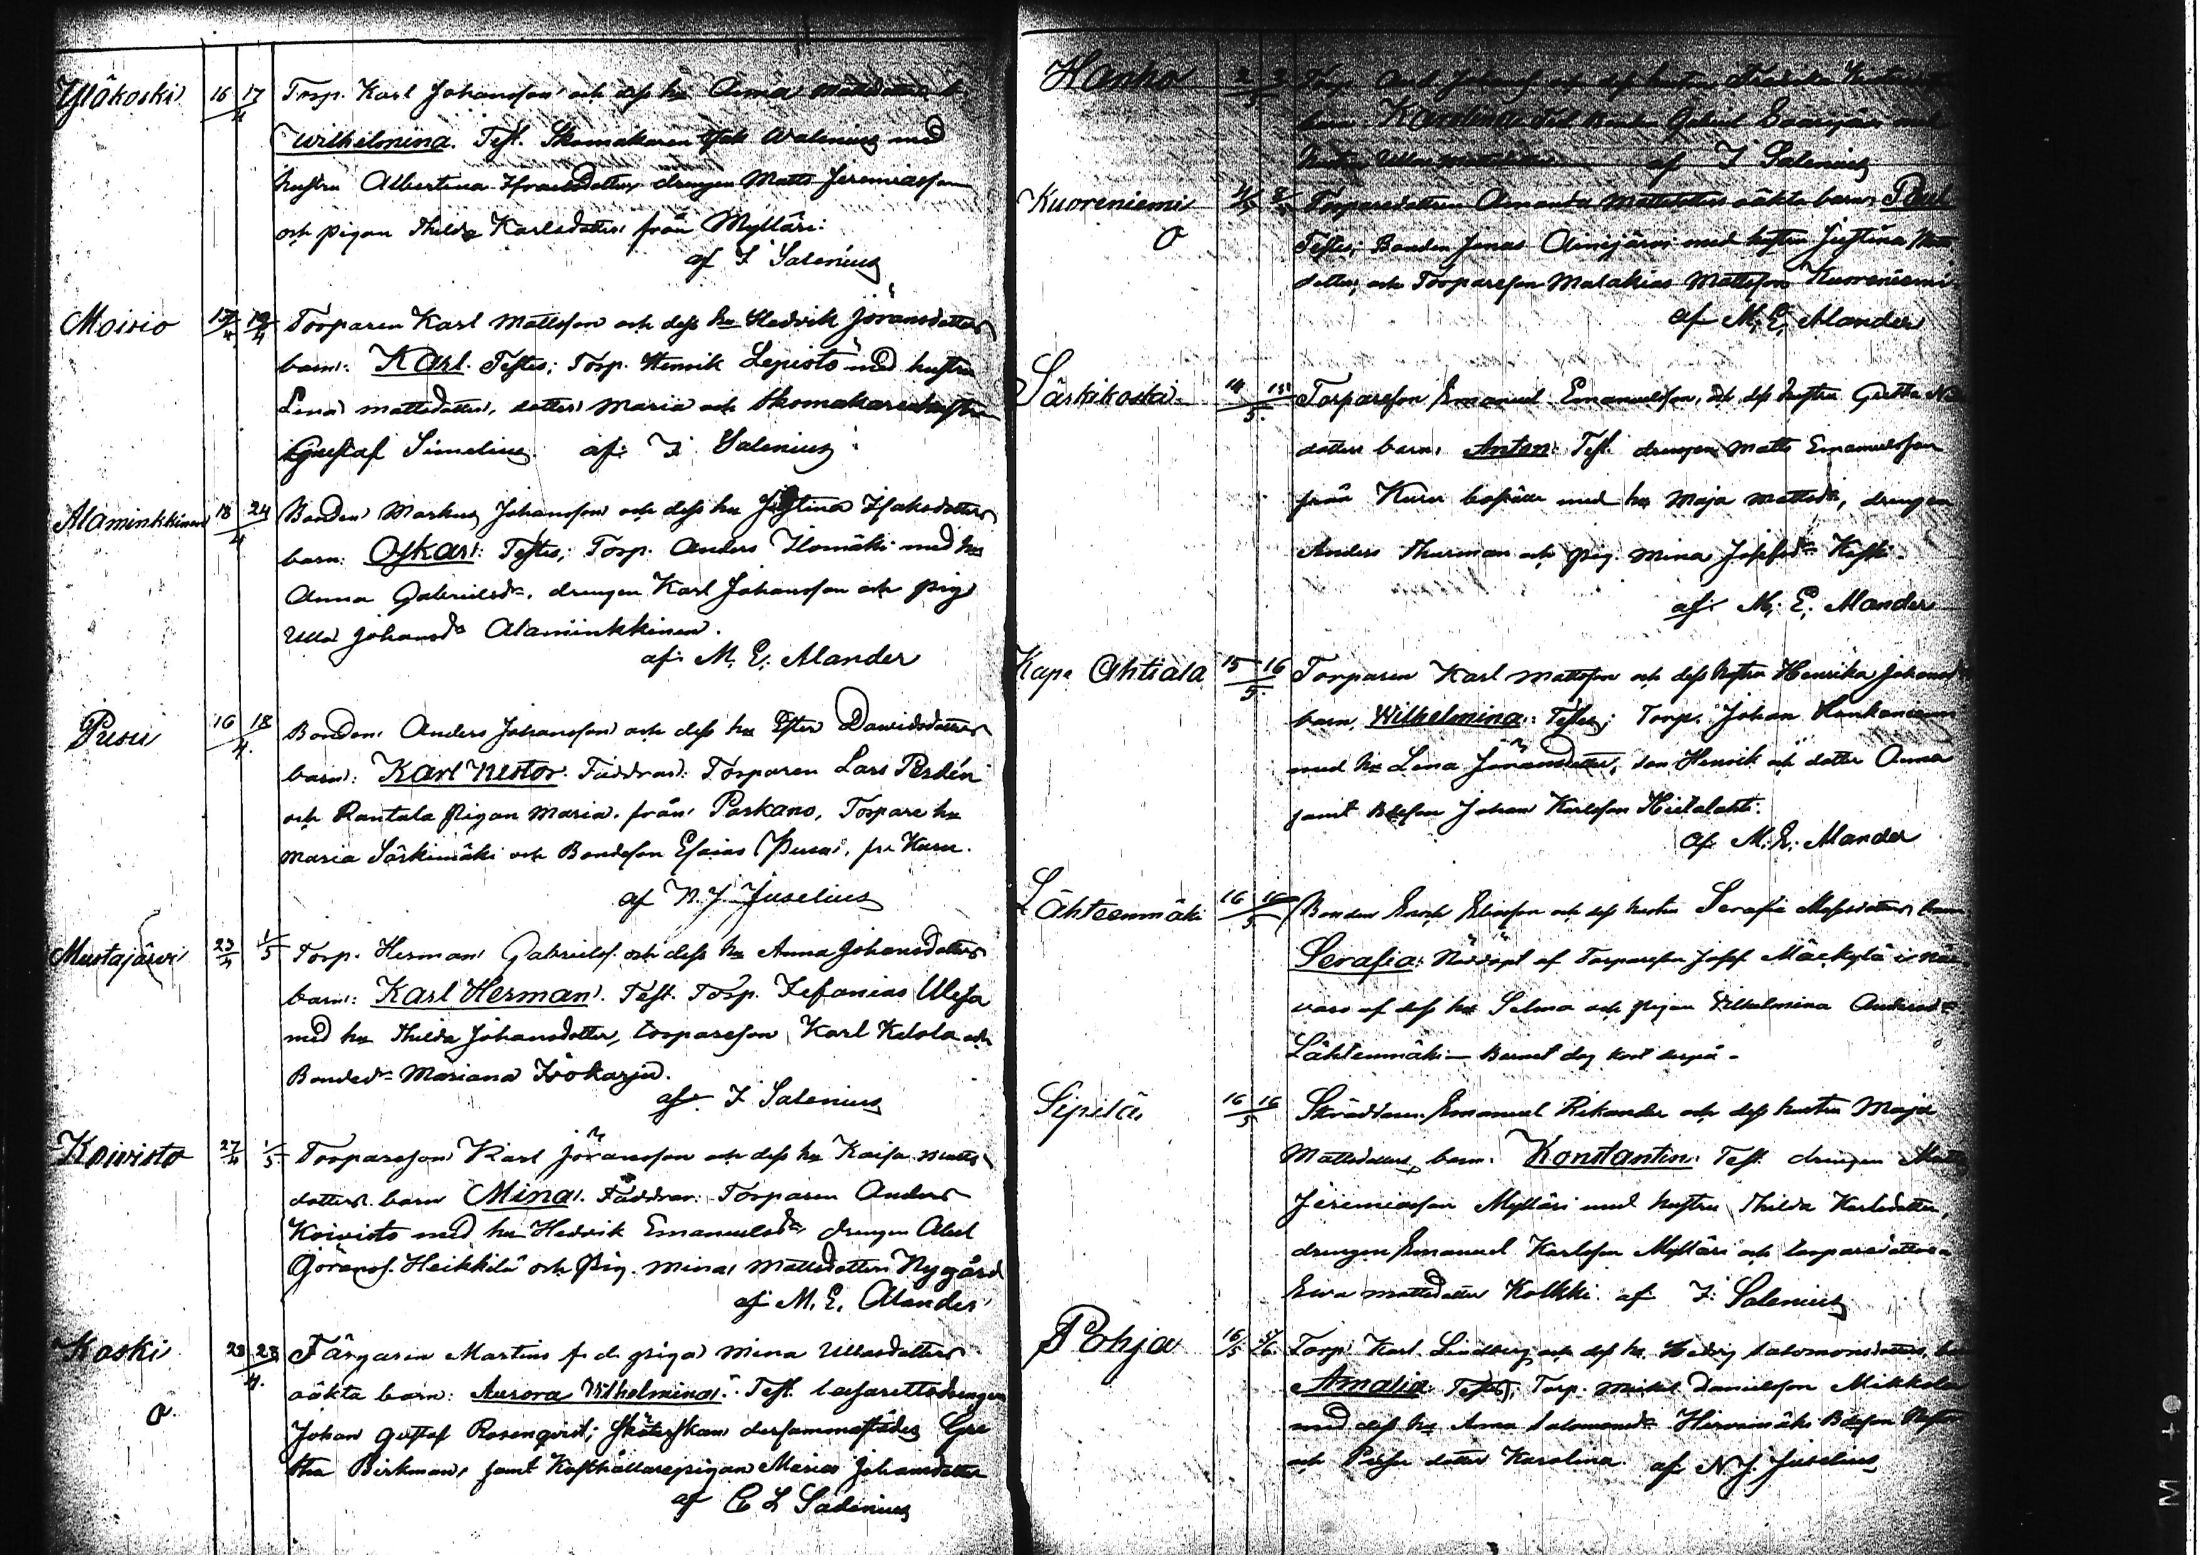 Yläkoski 16 17/4 Torp. Karl Johansson och dess hu Anna Mattsdotters b.
Wilhelmina. Test. Skomakaren Isak Walenius med
hustru Albertina Israelsdotter, drengen Matts Jeremiasson
och pigan Thilda Karlsdotter från Mylläri.
af I Salenius
Moisio 17/4 19/4 Torparen Karl Mattsson och dess hu Hedvik Jöransdotters
barn: Karl. Testes; Torp. Henrik Lepistö med hustru
Lena Mattsdotter, dotter Maria och Skomakare
Gustaf Simelius. af I Salenius
Alaminkkinen 18 24/4 Bonden Markus Johansson och dess hu Justina Isaksdotters
barn: Oskar: Testes; Torp. Anders Ilomäki med hu
Anna Gabrielsdr, drengen Karl Johansson och pig
Ulla Johansdr Alaminkkinen.
af M. E. Alander
Pusu 16 18/4 Bonden Anders Johansson och dess hu Ester Davidsdotters
barn: Karl Nestor. Faddrar: Torparen Lars Perdén
och Rantala pigan Maria, från Parkano, Torpare hu
Maria Särkimäki och Bondeson Esaias Pusu, fr. Kuru.
af N. J. Juselius
Mustajärvi 23/4 1/5 Torp. Herman Gabrielss. och dess hu Anna Johansdotters
barn: Karl Herman. Test. Torp. Zefanias Ulesa
med hu Thilda Johansdotter, torpareson Karl Ketola och
Bonded. Mariana Isokarju.
af I Salenius
Koivisto 27/4 1/5 Torpareson Karl Jöransson och dess hu Kaisa Matts
dotters barn Mina. Faddrar: Torparen Anders
Koivisto med hu Hedvik Emanuelsdr drengen Abel
Göranss. Heikkilä och Pig. Mina Mattsdotter Nygård
af M. E. Alander
Koski 23 23/4 Färgaren Martins f. d. piga Mina Ullasdotters
o oäkta barn: Aurora Wilhelmina. Test. lasarettsdrengen
Johan Gustaf Rosenqvist; Sköterskan dersammastädes Gre
tha Birkman, samt Kosthållarepigan Maria Johansdotter
af C L Salenius
Hanho 2 3/5 Torp. Johanss. och dess hustru Fredrika
barn Karolina. Test. Bonden Gabriel
hustru Ulla af I Salenius
Kuoreniemi 4/5 8/5 Torparedottren Amanda Mattsdotters oäkta barn Paul
o Testes; Bonden Jonas Ainesjärvi med hustru Justina Matts
dotter, och Torpareson Malakias Mattsson Kuoreniemi
af M. E. Alander
Särkikoski 14 15/5 Torpareson Emanuel Emanuelsson, och dess hustru Gretha
dotters barn, Anton: Test. drengen Matts Emanuelsson
från Kuru med hu Maja Mattsdr, drengen
Anders Thurman och pig. Mina Josefsdr Koski.
af M. E. Alander
Kap. Ahtiala 15 16/5 Torparen Karl Mattsson och dess hustru Henrika Johansdr
barn, Wilhelmina: Testes; Torp. Johan Hankaniemi
med hu Lena Jöransdotter, son Henrik och dotter Anna
samt Bdeson Johan Karlsson Hietalahti.
af M. E. Alander
Lähteenmäki 16 16/5 Bonden Enok Eliasson och dess hustru Serafia dotters barn
Serafia: Nöddöpt af Torpareson Josef Mäekylä i när
varo af dess hu Selma och pigan Wilhelmina Andersdr
Lähteenmäki — Barnet dog kort derpå -
Sipilä 16 16/5 Skräddaren Emanuel Rikander och dess hustru Maja
Mattsdotters barn. Konstantin. Test. drengen Matts
Jeremiasson Mylläri med hustru Thilda Karlsdotter,
drengen Emanuel Karlsson Mylläri och torparedottren
Ewa Mattsdotter Kolkki. af I. Salenius
Pohja 16/5 Torp. Karl Lindberg och dess hu Hedvig Salomonsdotters barn
Amalia. Testes; Torp. Mickel Danielsson Mikkola
med dess hu Anna Salomonsdr Hirvimäki Bdeson
och dotter Karolina. af N J. Juselius
M